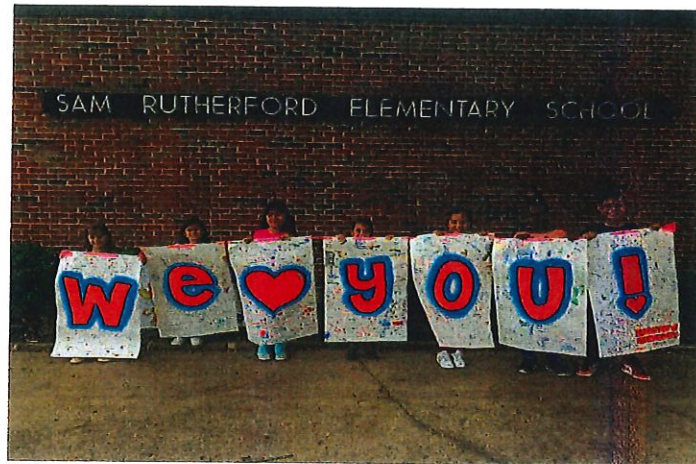 SAM RUTHERFORD ELEMENTARY SCHOOL
we ♥ you!